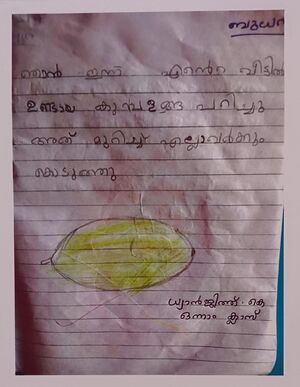 ബുധൻ
ഞാൻ ഇന്ന് എൻ്റെ വീട്ടിൽ
ഉണ്ടായ കുമ്പളങ്ങ പറിച്ചു
അത് മുറിച്ച് എല്ലാവർക്കും
കൊടുത്തു
ധ്യാൻജിത്ത്. കെ
ഒന്നാം ക്ലാസ്